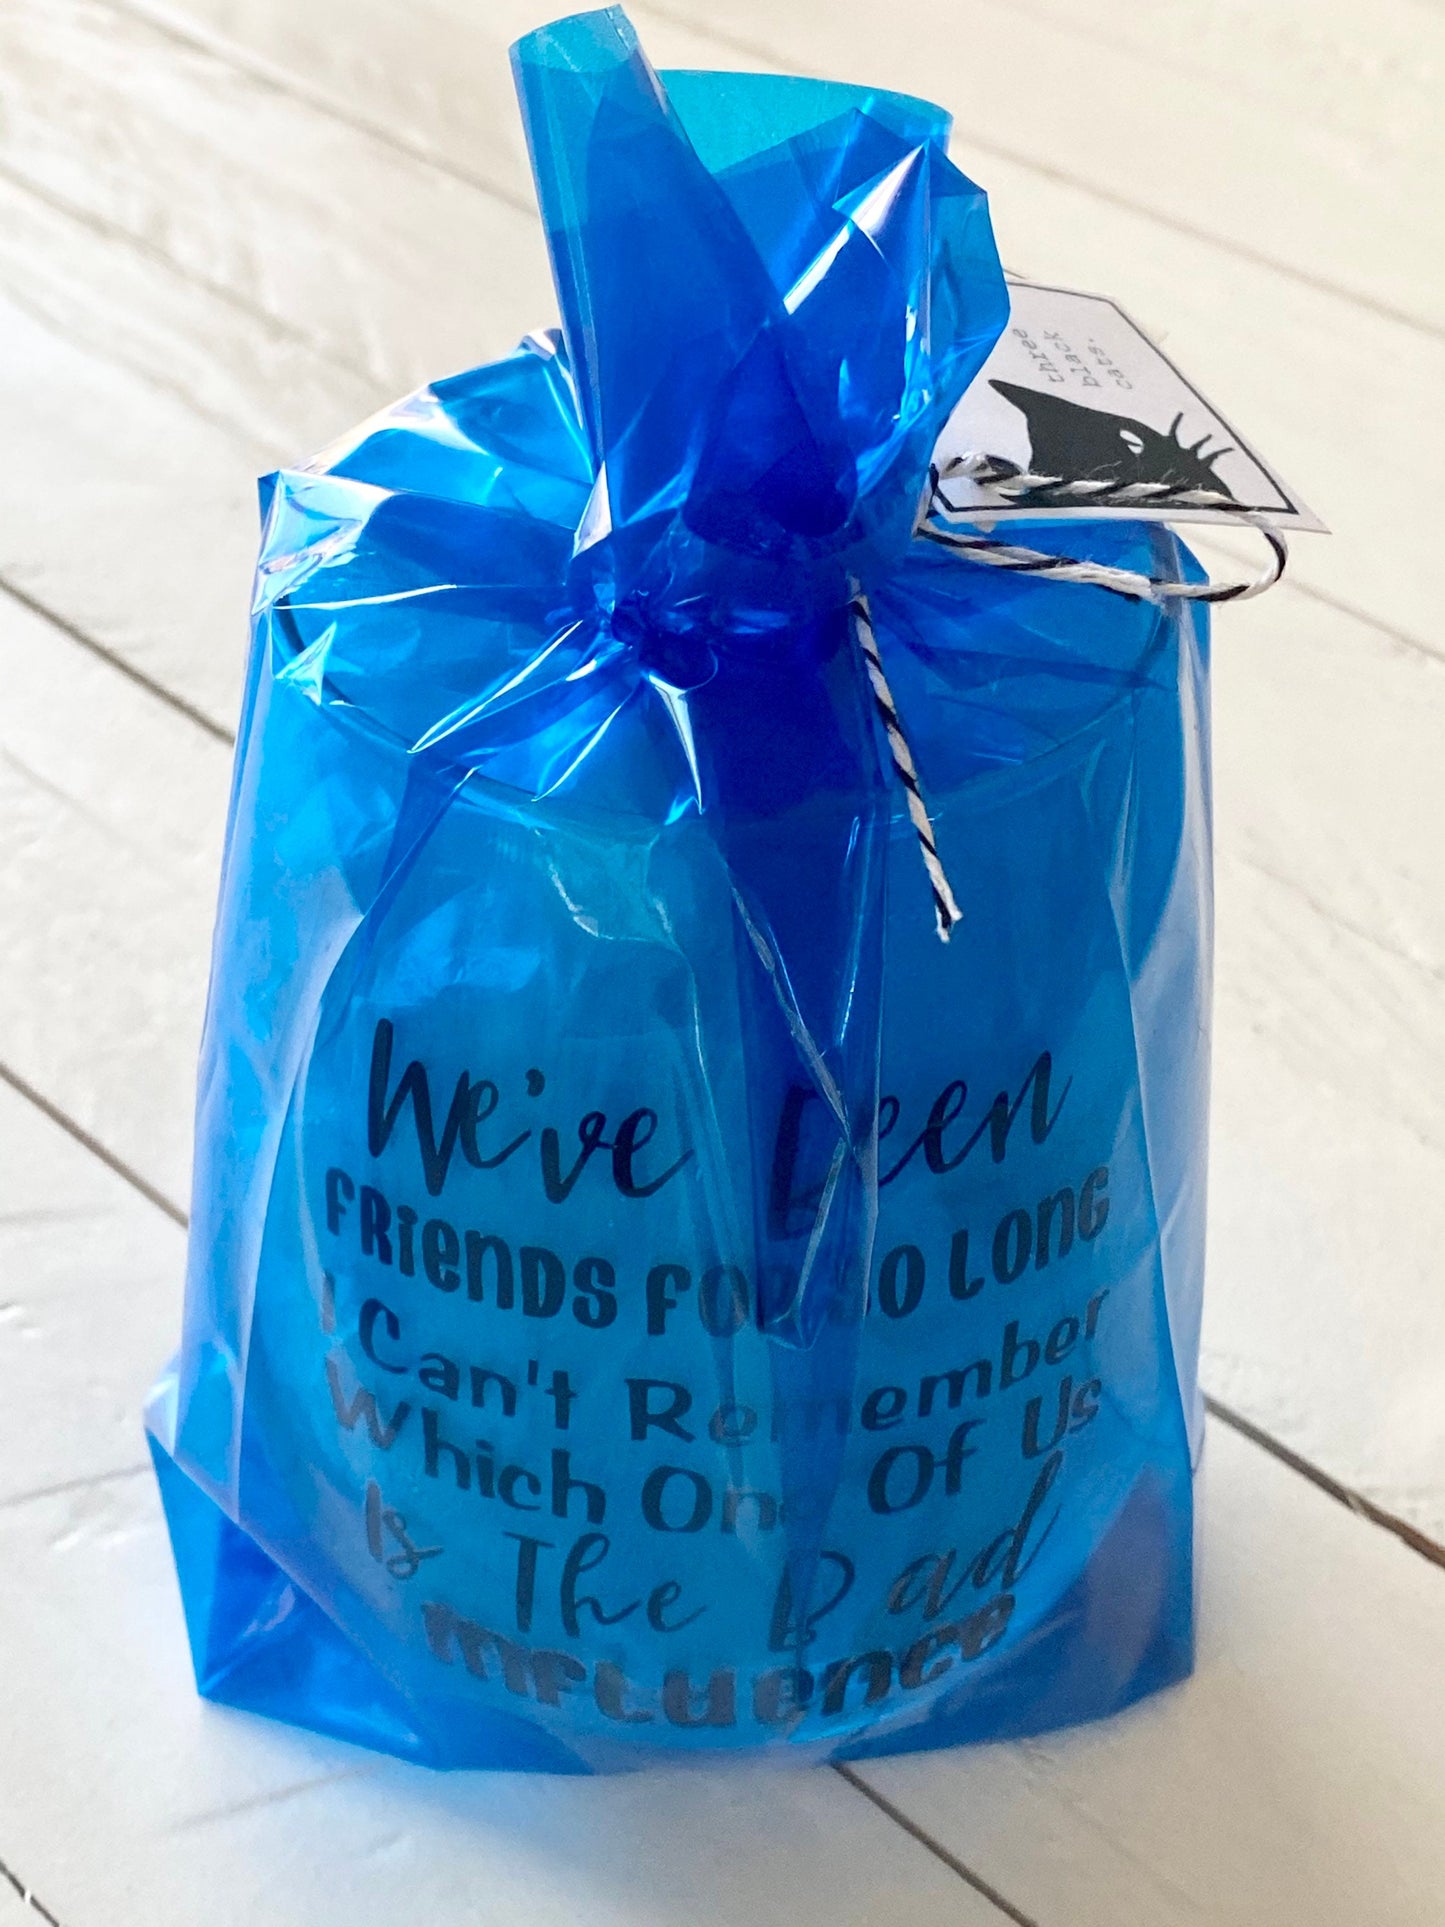 three
black
cats.
We've Been
FRIENDS FOR SO LONG
I Can't Remember
Which One Of Us
Is The Bad
INFLUENCE